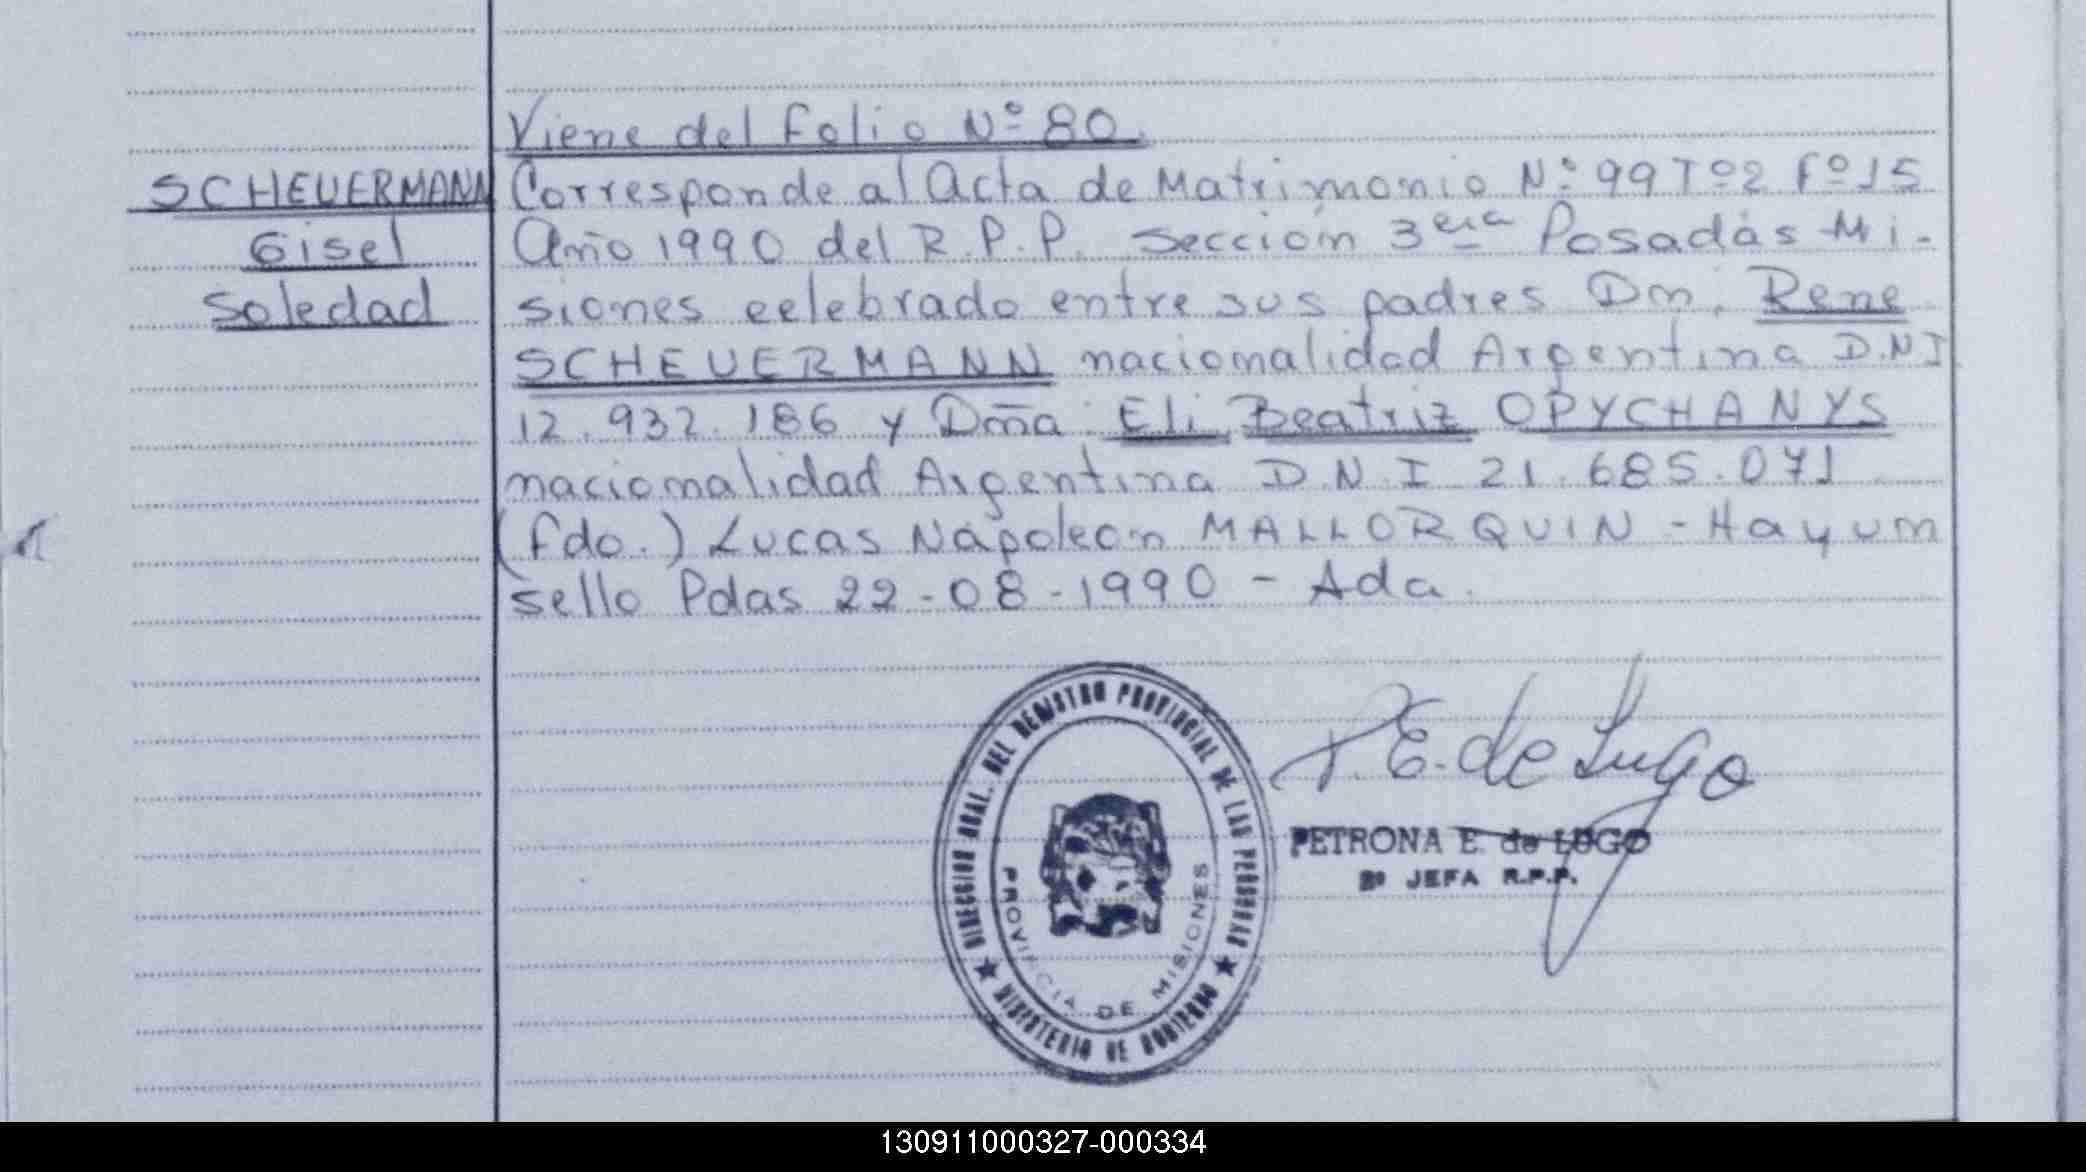 Viene del folio Nº 80
SCHEUERMANN Corresponde al Acta de Matrimonio Nº 99 Tº2 Fº15
Gisel Año 1990 del R.P.P. Sección 3era Posadas Mi-
Soledad siones celebrado entre sus padres Dn. Rene
SCHEUERMANN nacionalidad Argentina D.N.I
12.932.186 y Dña. Eli Beatriz OPYCHANYS
nacionalidad Argentina D.N.I 21.685.071
(fdo.) Lucas Napoleon MALLORQUIN - Hay un
sello Pdas 22-08-1990 - Ada.
DIRECCION GRAL. DEL REGISTRO PROVINCIAL DE LAS PERSONAS
MINISTERIO DE GOBIERNO
PROVINCIA DE MISIONES
P.E. de Lugo
PETRONA E. de LUGO
2º JEFA R.P.P.
130911000327-000334